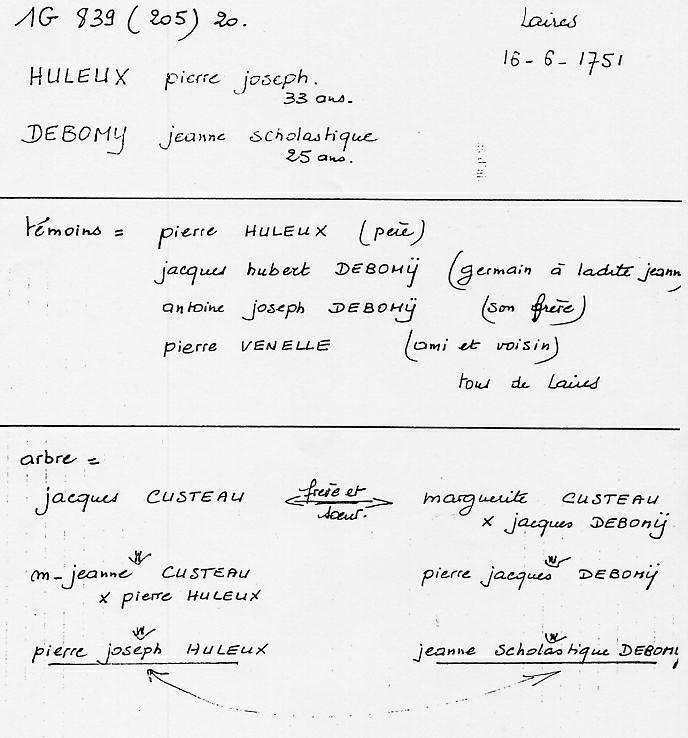 1G 839 (205) 20.
Laires
16-6-1751
HULEUX pierre joseph.
33 ans.
DEBOMY jeanne scholastique
25 ans.
témoins = pierre HULEUX (père)
jacques hubert DEBOMŸ (germain à ladite jeann
antoine joseph DEBOMŸ (son frère)
pierre VENELLE (ami et voisin)
tous de Laires
arbre =
jacques CUSTEAU
frère et
soeur.
marguerite CUSTEAU
x jacques DEBOMŸ
m-jeanne CUSTEAU
x pierre HULEUX
pierre jacques DEBOMŸ
pierre joseph HULEUX
jeanne Scholastique DEBOMY